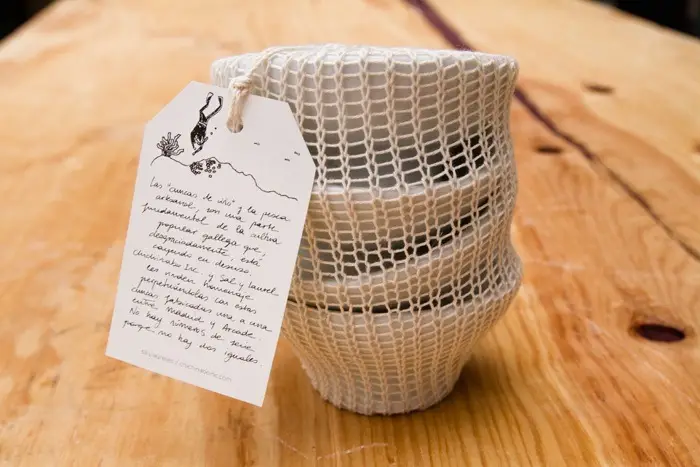 Las "cuncas de viño" y la pesca
artesanal, son una parte
fundamental de la cultura
popular gallega que,
desgraciadamente, está
cayendo en desuso.
Chichinabo Inc. y Sal y Laurel
les rinden homenaje
perpetuándolas con estas
cuncas fabricadas una a una
entre Madrid y Arcade.
No hay números de serie
porque no hay dos iguales.